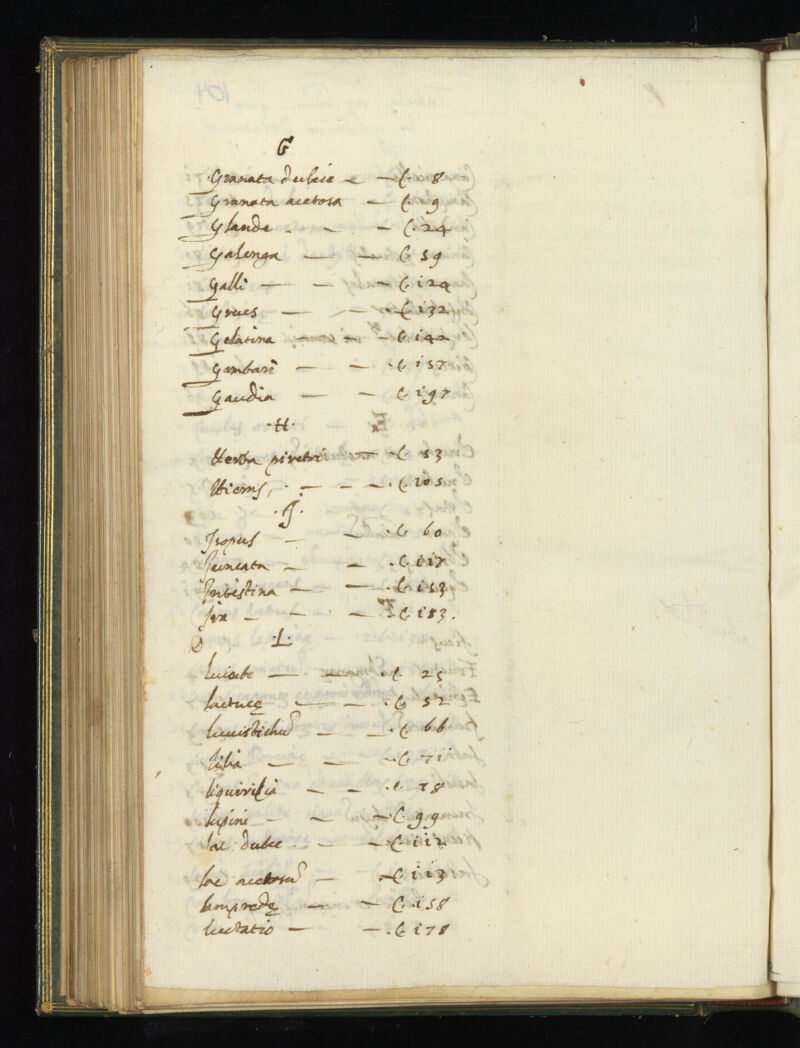 G
Granata dulcia — C. 8
Granata acetosa — C. 9
Glande . - — C. 24
Galenga — — C 59
Galli — — C 124
Grues — — C 132
Gelatina — — C 142
Gambari — — . C 157
Gaudia — — . C 197
.H.
Herba piretri — . C 53
Hiems, . — — . C 105
.J.
Jsopus — — . C 60
Juncata — — . C 117
Jntestina — — . C 153
Jra — — — C 183.
.L.
luiube — — . C. 25
lactucę — — . C 52
leuistichũ — — . C 66
lilia — — . C 71
liquiritia — — . C 78
lupini — — — C 99
lac dulce . — — C 112
lac acetosũ — — C 113
lampredę — — C. 158
luctatio — — . C 178